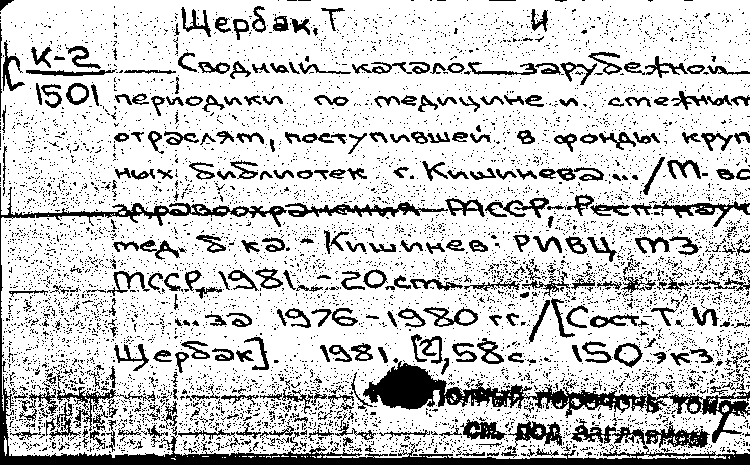 Щербак, Т И
К-2 Сводный каталог зарубежной
1501 периодики по медицине и смежным
отраслям, поступившей в фонды круп
ных библиотек г. Кишинева... / М-во
здравоохранения МССР, Респ. науч
мед. б-ка. - Кишинев: РИВЦ МЗ
МССР, 1981. - 20 см.
...за 1976-1980 гг. / [Сост. Т. И.
Щербак]. 1981. [2], 58 с. 150 экз.
Полный перечень томов
см. под заглавием